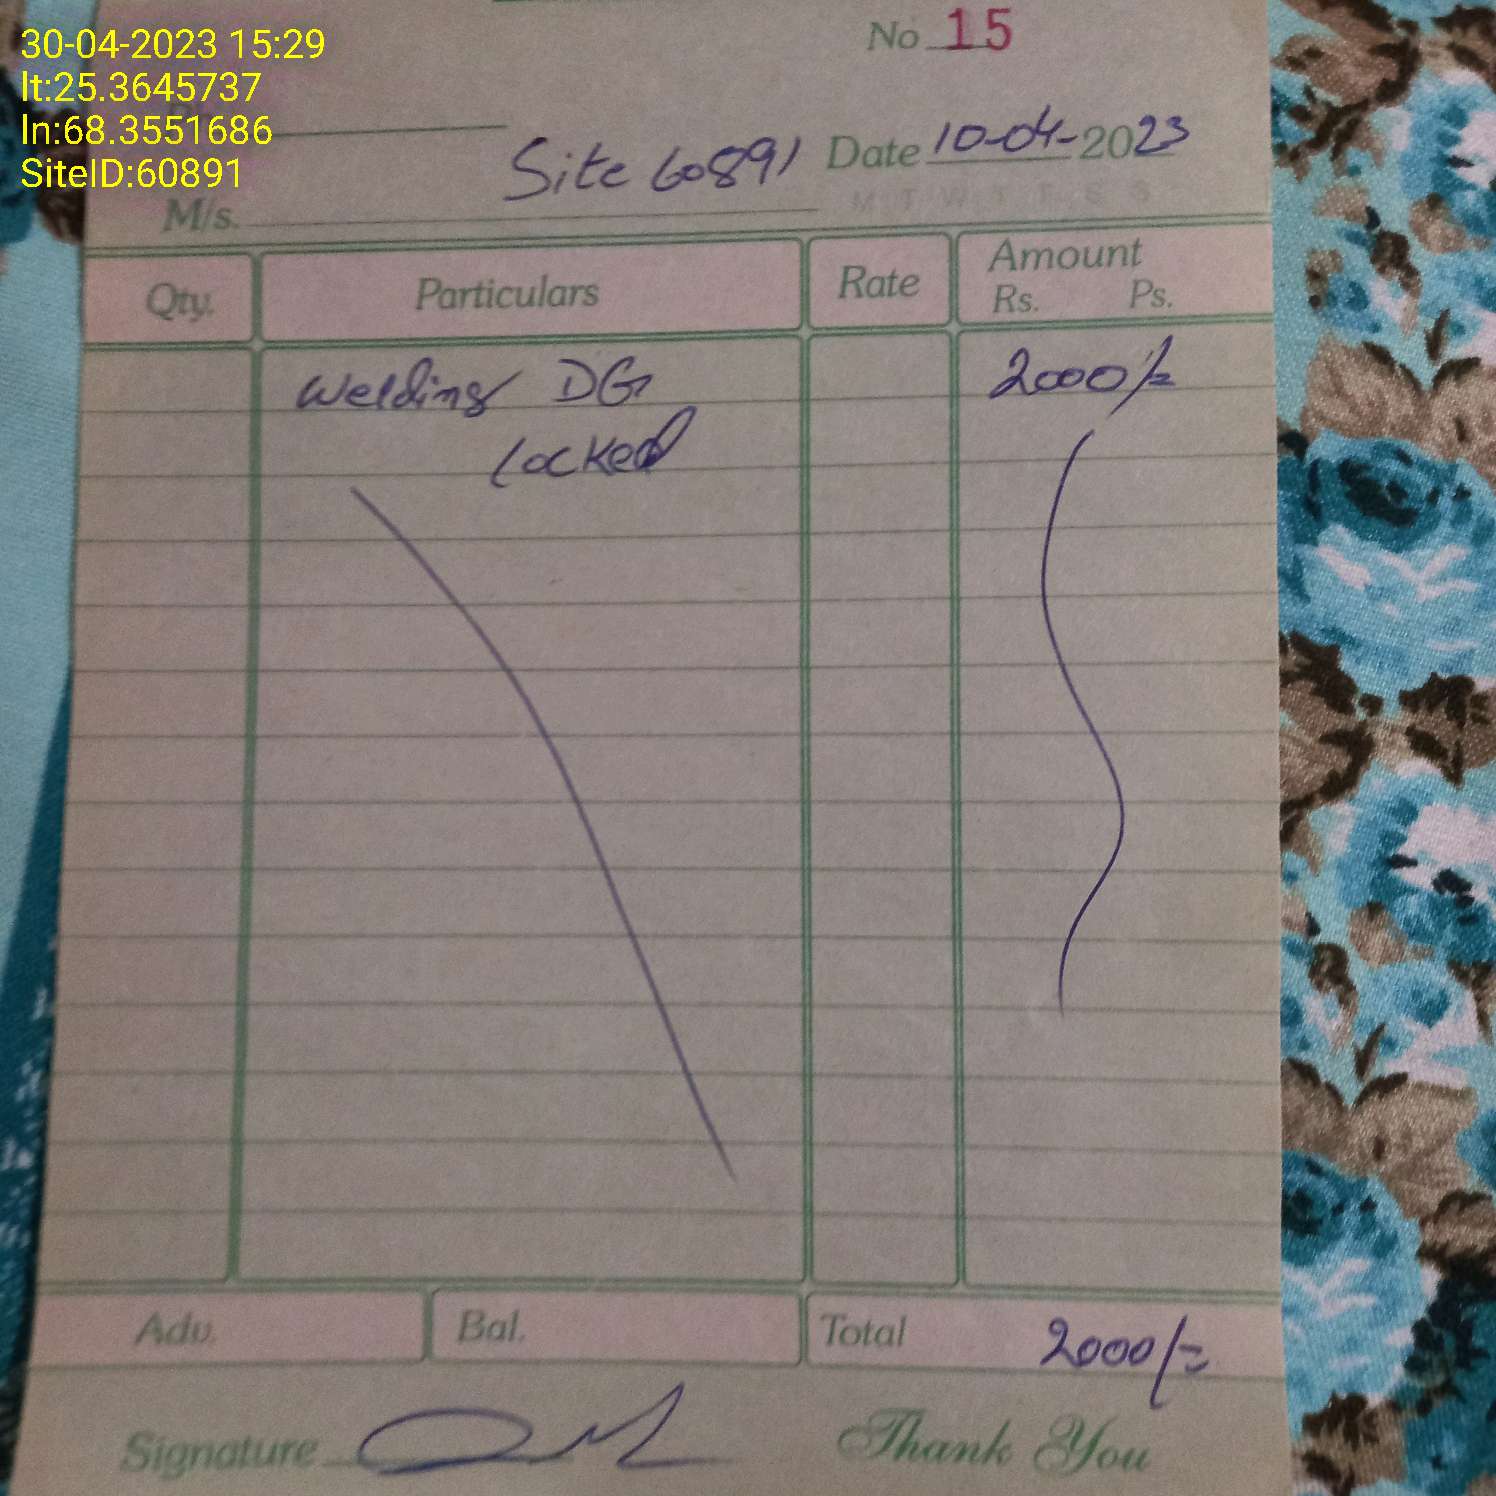 30-04-2023 15:29
lt:25.3645737
ln:68.3551686
SiteID:60891
No 15
Site 60891 Date 10-04-2023
M/s.
M T W T F S S
Qty. Particulars Rate Amount
Rs. Ps.
Welding DG 2000/=
Locked
Adv. Bal. Total 2000/=
Signature Thank You